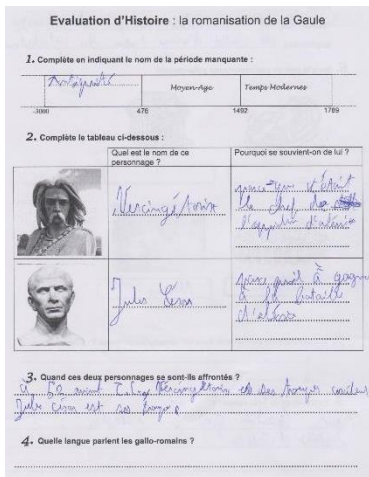 Evaluation d'Histoire : la romanisation de la Gaule
1. Complète en indiquant le nom de la période manquante :
Antiquité Moyen-Age Temps Modernes
-3000 476 1492 1789
2. Complète le tableau ci-dessous :
Quel est le nom de ce personnage ?
Pourquoi se souvient-on de lui ?
Vercingétorix
c'était
le chef de
Jules César
à gagné
à la bataille
3. Quand ces deux personnages se sont-ils affrontés ?
à 52 avant et ses
Jules César est ses
4. Quelle langue parlent les gallo-romains ?